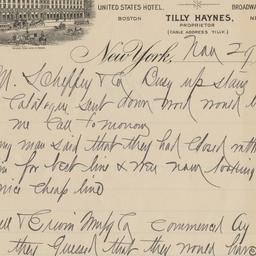 UNITED STATES HOTEL,
BOSTON
TILLY HAYNES,
PROPRIETOR
(CABLE ADDRESS TILLY.)
BROADWA
NE
New York, Nov 29
M. Scheffey & Co Busy up stairs
Catalogue sent down word would
me Call to morrow
ng man said that they had closed with
m for best line & was now looking
nice cheap line
ell & Erwin Mnfg Co commenced by
they guessed that they would have